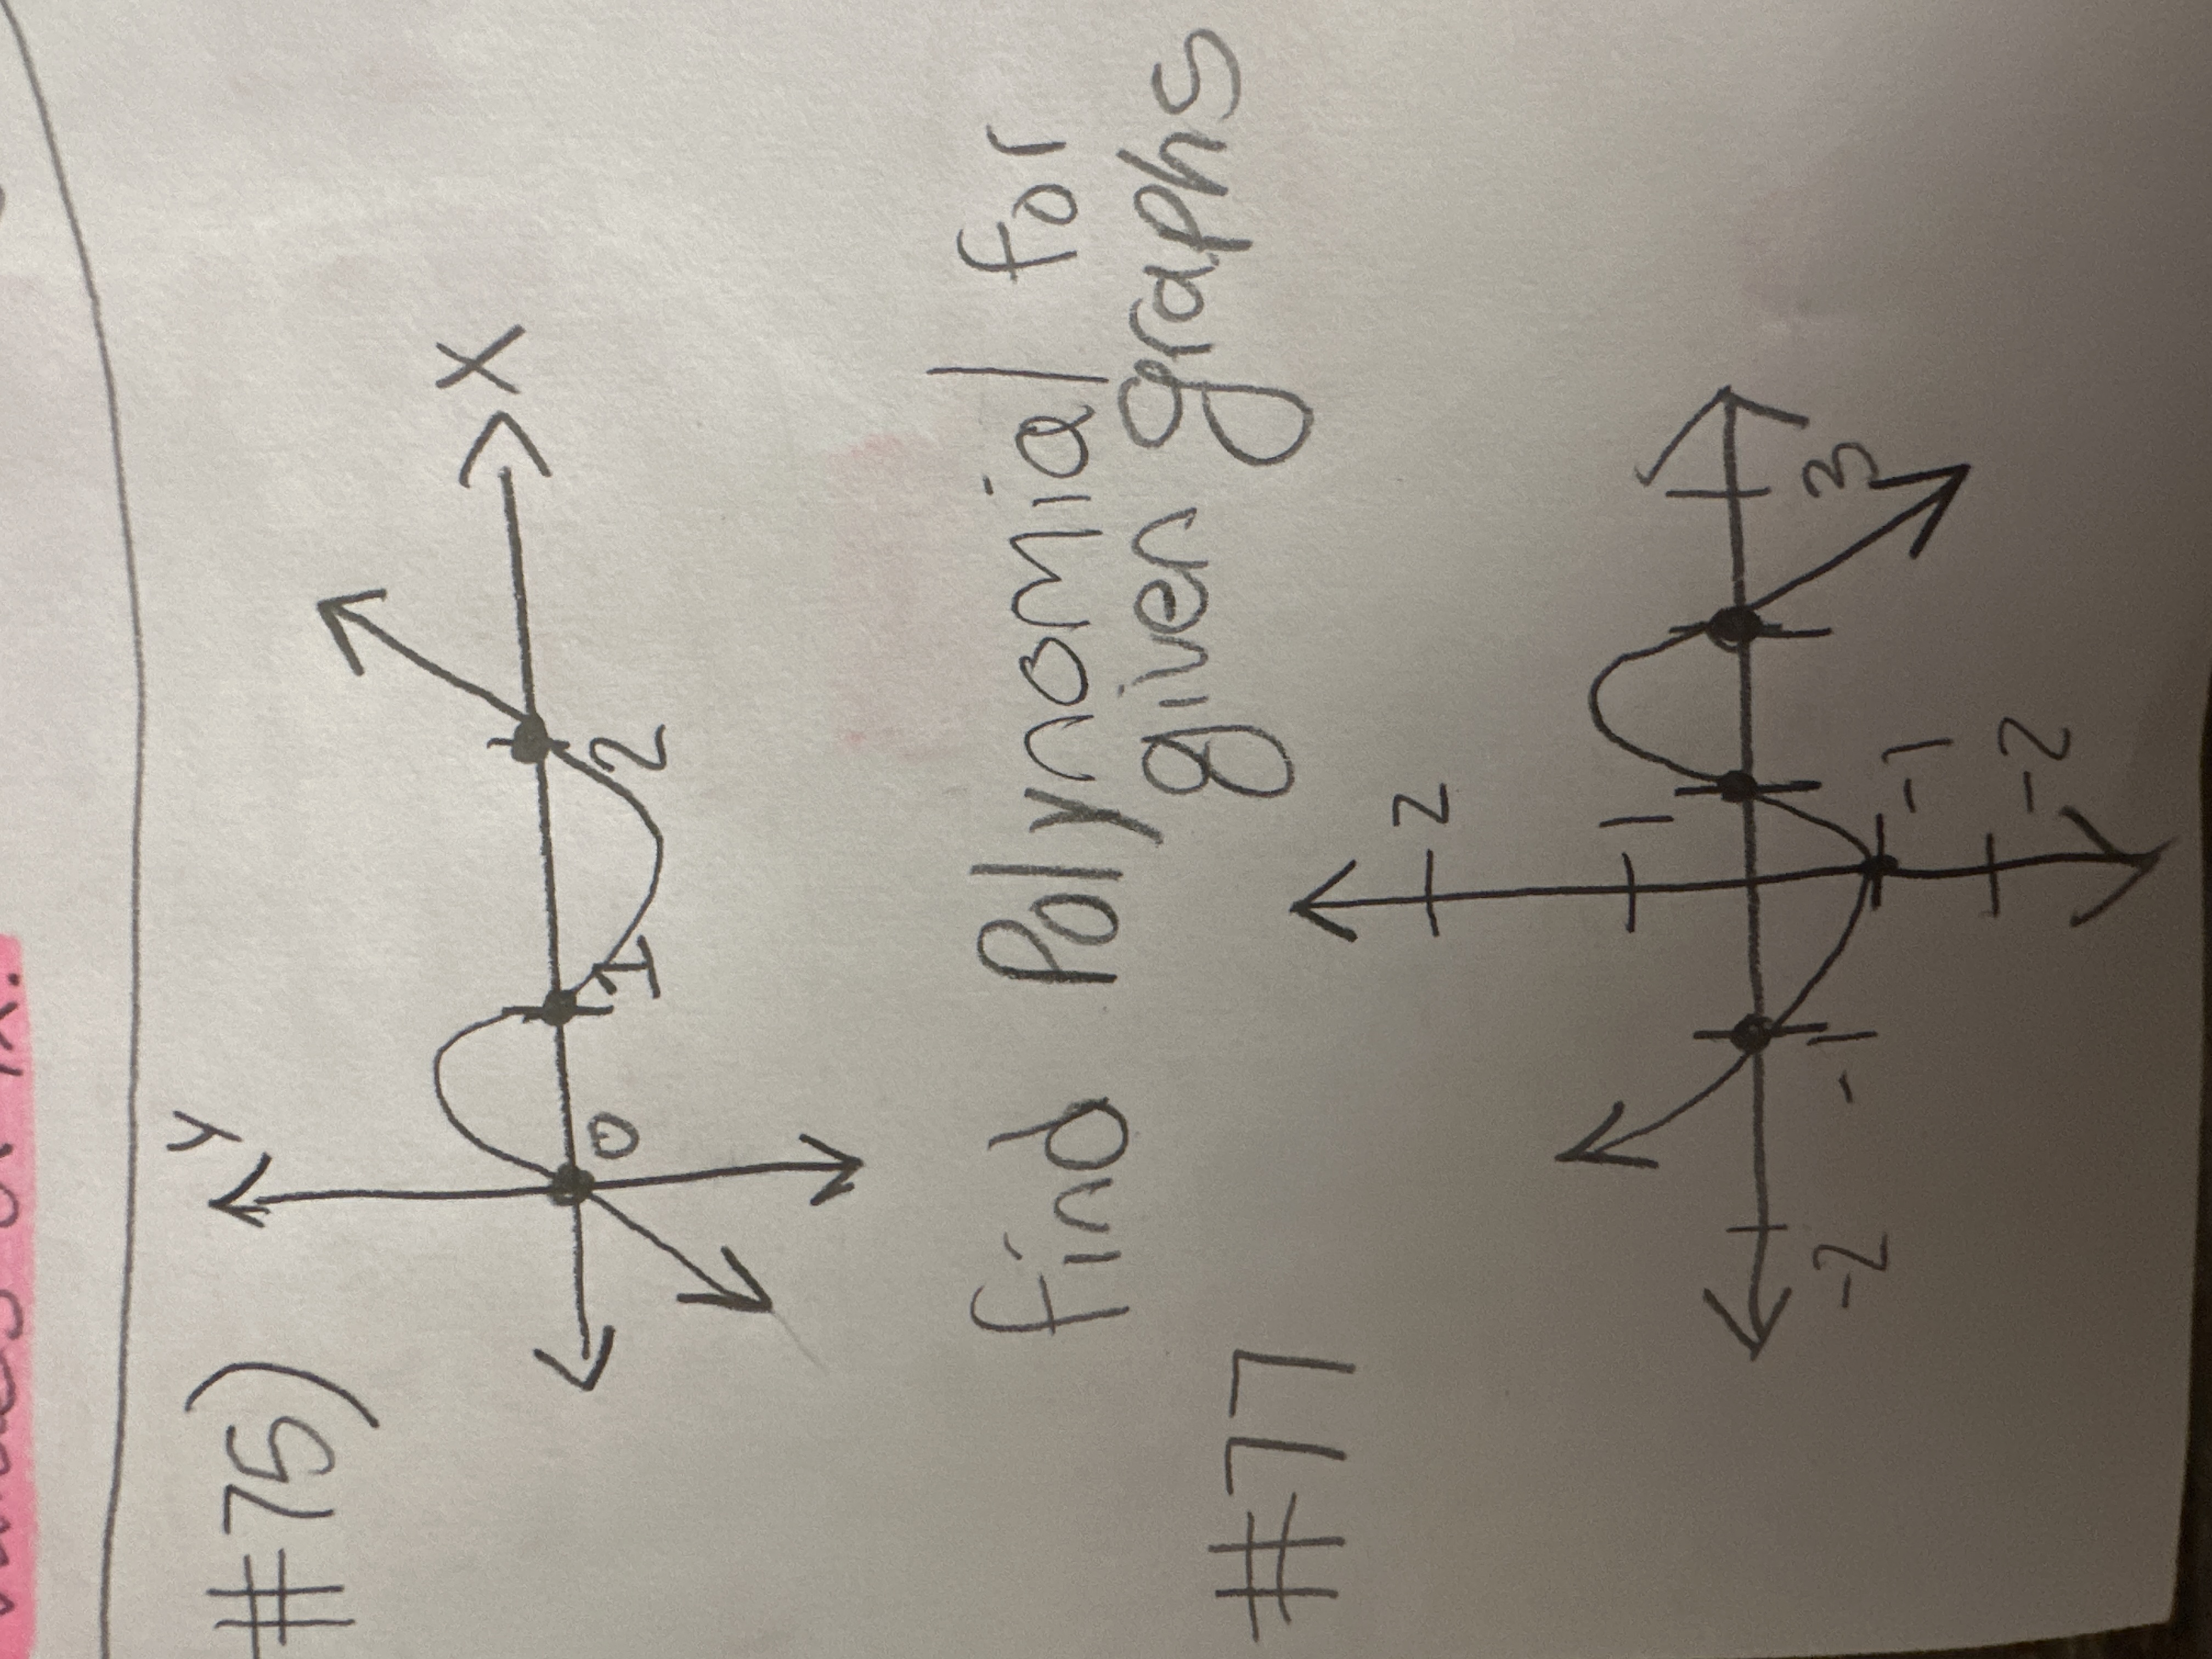 #75)
y
X
0
1
2
Find Polynomial for
given graphs
#77
2
1
-2
-1
3
-1
-2